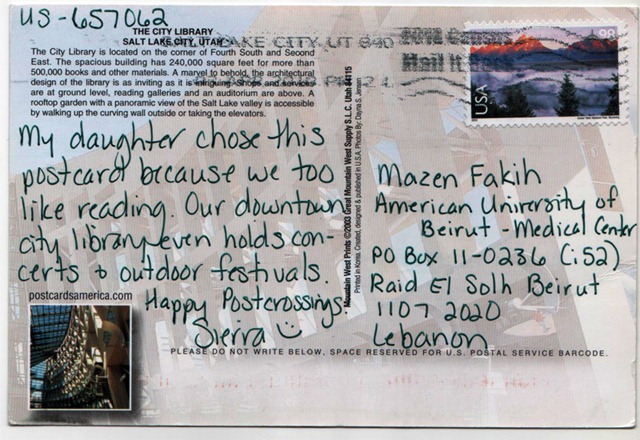 US-657062
THE CITY LIBRARY
SALT LAKE CITY, UTAH
The City Library is located on the corner of Fourth South and Second
East. The spacious building has 240,000 square feet for more than
500,000 books and other materials. A marvel to behold, the architectural
design of the library is as inviting as it is intriguing. Shops and services
are at ground level, reading galleries and an auditorium are above. A
rooftop garden with a panoramic view of the Salt Lake valley is accessible
by walking up the curving wall outside or taking the elevators.
LAKE CITY UT 840
2010 Census
Mail It
98
USA
My daughter chose this
postcard because we too
like reading. Our downtown
city library even holds con-
certs & outdoor festivals.
Happy Postcrossings.
Sierra
postcardsamerica.com
Mountain West Prints ©2003 Great Mountain West Supply S.L.C. Utah 84115
Printed in Korea. Created, designed & published in U.S.A. Photos By: Dayna S. Jensen
Mazen Fakih
American University of
Beirut - Medical Center
PO Box 11-0236 (i:52)
Raid El Solh Beirut
1107 2020
Lebanon
PLEASE DO NOT WRITE BELOW, SPACE RESERVED FOR U.S. POSTAL SERVICE BARCODE.